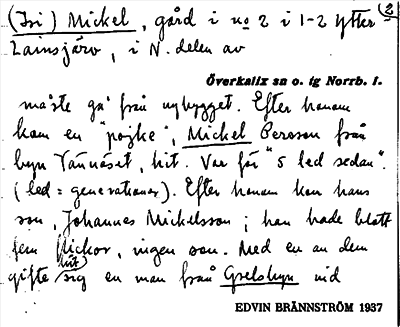 (Isi) Mickel, gård i no 2 i 1-2 Ytter- 2
Lainsjärv, i N. delen av
Överkalix sn o. tg Norrb. l.
måste gå från nybygget. Efter honom
kom en "pojke", Mickel Persson från
byn Vännäset, hit. Var för "5 led sedan".
(led = generationer). Efter honom kom hans
son, Johannes Mickelsson; han hade blott
fem flickor, ingen son. Med en av dem
gifte hit sig en man från Grelsbyn vid
EDVIN BRÄNNSTRÖM 1937